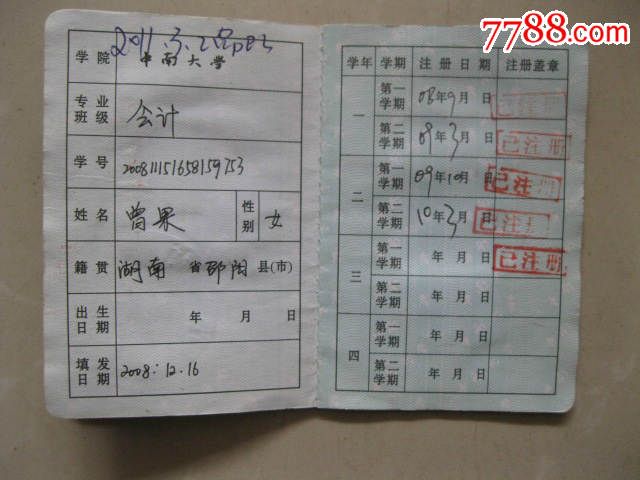 7788.com
中国收藏热线
2011.
学院 中南大学
专业班级 会计
学号 200811151658159753
姓名 曾果 性别 女
籍贯 湖南 省 邵阳 县(市)
出生日期 年 月 日
填发日期 2008.12.16
学年 学期 注册日期 注册盖章
一 第一学期 08年9月 日 已注册
第二学期 09年3月 日 已注册
二 第一学期 09年10月 日 已注册
第二学期 10年3月 日 已注册
三 第一学期 年 月 日 已注册
第二学期 年 月 日
四 第一学期 年 月 日
第二学期 年 月 日